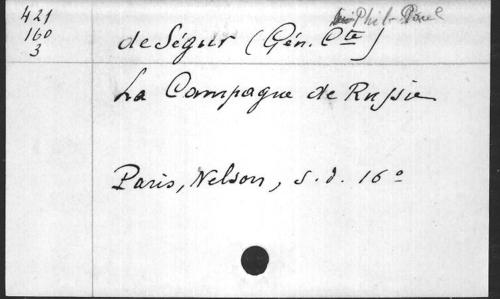 421
160
3
Phil-Paul
de Ségur (Gén. Cte)
La Campagne de Russie
Paris, Nelson, s.d. 16º